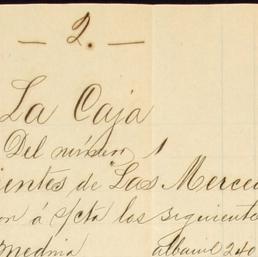 — 2. —
La Caja
Del número 1
ientes de Las Merce
on á s/cta los siguiente
medina albañil 240